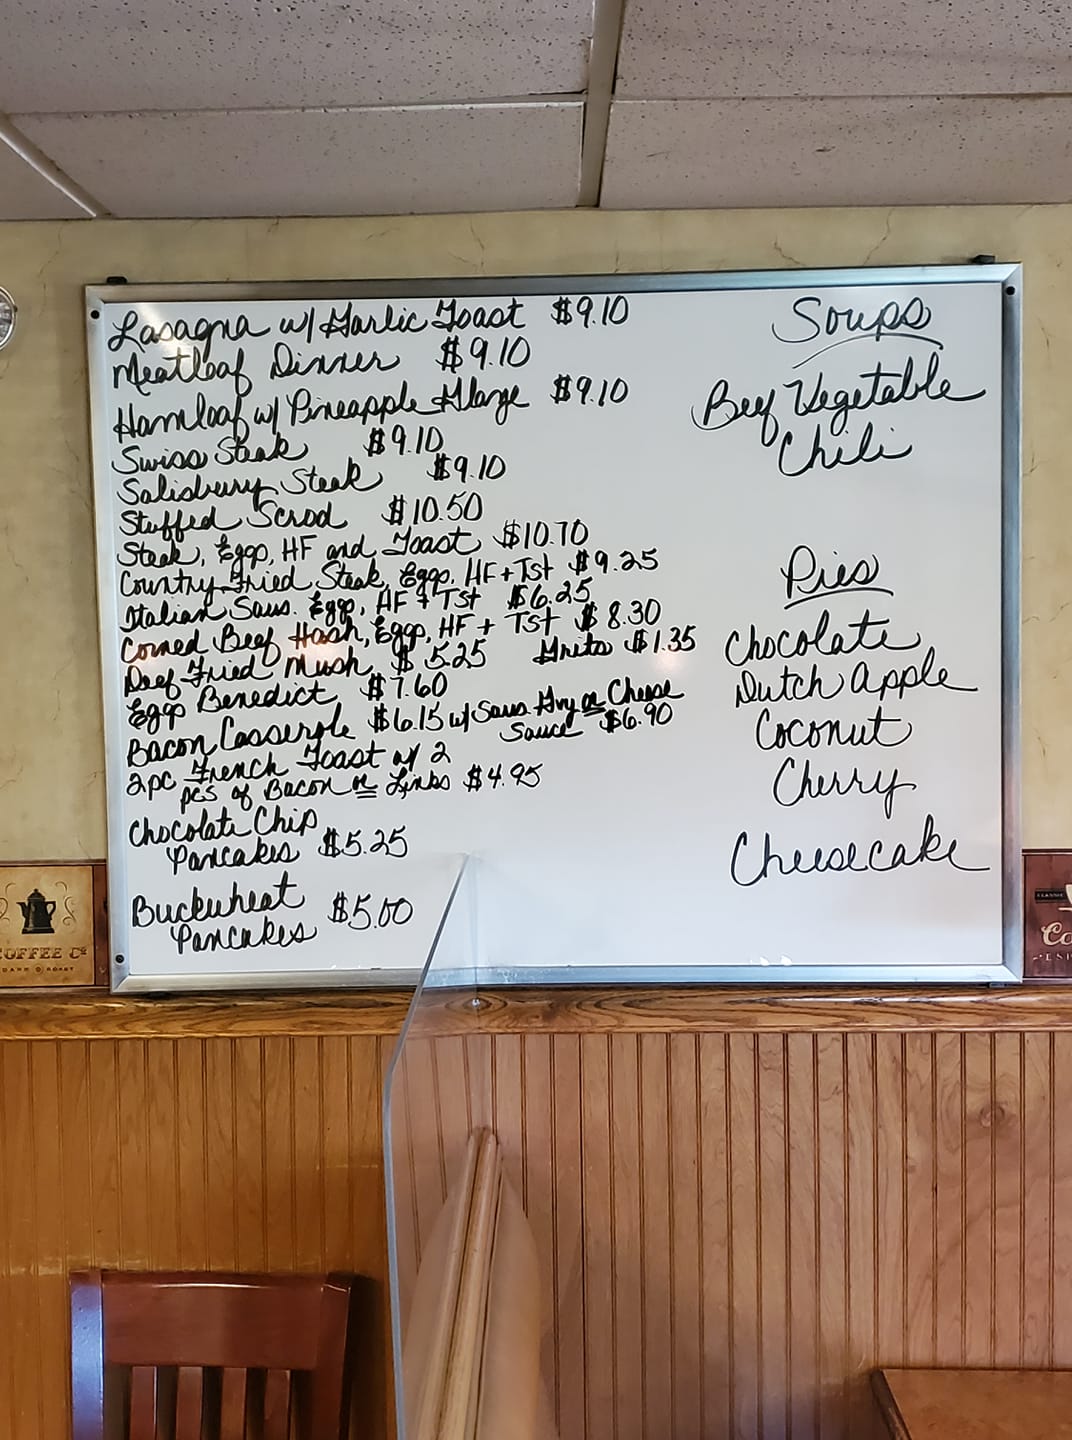 Lasagna w/ Garlic Toast $9.10
Meatloaf Dinner $9.10
Hamloaf w/ Pineapple Glaze $9.10
Swiss Steak $9.10
Salisbury Steak $9.10
Stuffed Scrod $10.50
Steak, Eggs, HF and Toast $10.70
Country Fried Steak, Eggs, HF + Tst $9.25
Italian Saus. Eggs, HF + Tst $6.25
Corned Beef Hash, Eggs, HF + Tst $8.30
Deep Fried Mush $5.25 Grits $1.35
Eggs Benedict $7.60
Bacon Casserole $6.15 w/ Saus. Gvy or Cheese
Sauce $6.90
2pc French Toast w/ 2
pcs of Bacon or Links $4.95
Chocolate Chip
Pancakes $5.25
Buckwheat
Pancakes $5.00
Soups
Beef Vegetable
Chili
Pies
Chocolate
Dutch Apple
Coconut
Cherry
Cheesecake
COFFEE Co
DARK ROAST
CLASSIC